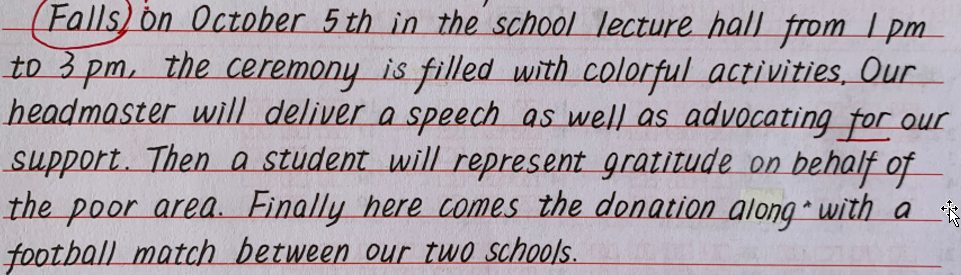 Falls on October 5th in the school lecture hall from 1 pm
to 3 pm, the ceremony is filled with colorful activities. Our
headmaster will deliver a speech as well as advocating for our
support. Then a student will represent gratitude on behalf of
the poor area. Finally here comes the donation along with a
football match between our two schools.